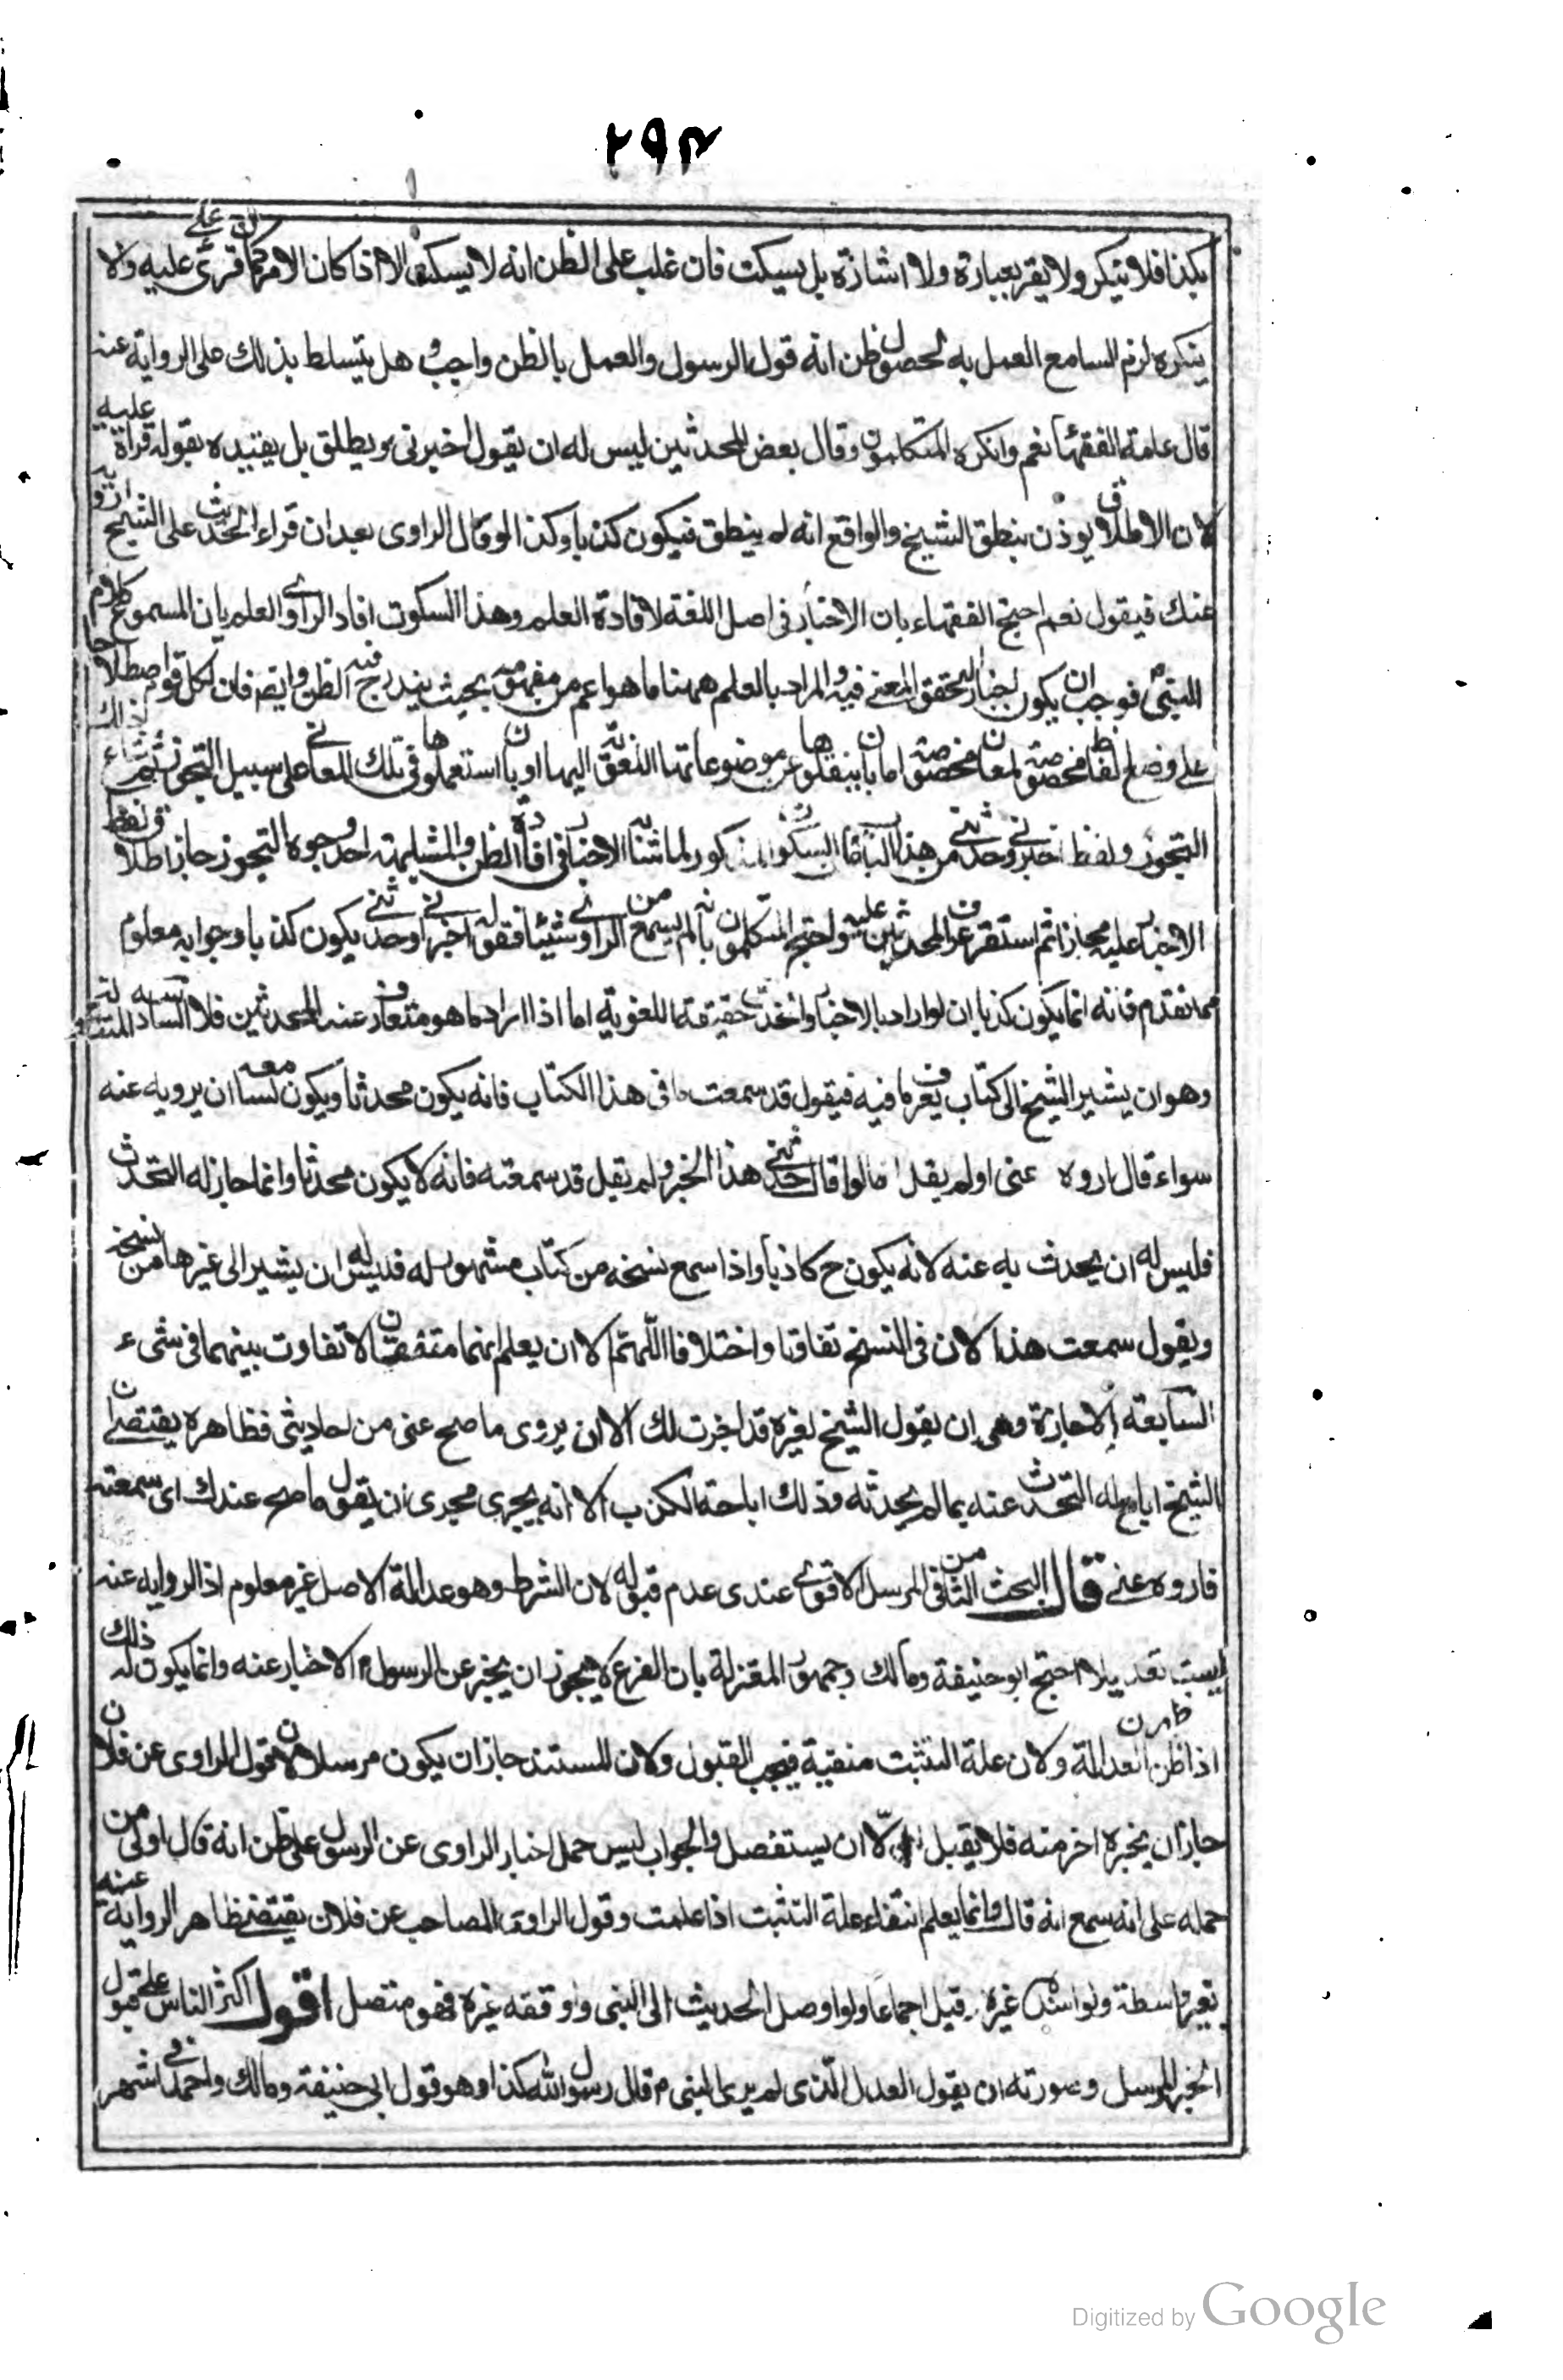 ٢٩٣
بكذا فلا ينكر ولا يقر بعبارة ولا اشارة بل يسكت فان غلب على الظن انه لا يسكت الا اذا كان الامر كما قرئ عليه والا
ينكره لزم السامع العمل به لحصول ظن انه قول الرسول والعمل بالظن واجب وهل يتسلط بذلك على الرواية عنه
قال عامة الفقهاء نعم وانكره المتكلمون وقال بعض المحدثين ليس له ان يقول اخبرنى ويطلق بل يقيده بقوله قراءة عليه
لان الاطلاق يوذن بنطق الشيخ والواقع انه لم ينطق فيكون كذبا وكذا لو قال الراوى بعد ان قراء الحديث على الشيخ ارويه
عنك فيقول نعم احتج الفقهاء بان الاخبار فى اصل اللغة لافادة العلم وهذا السكوت افاد الراوى العلم بان المسموع كلام
النبى فوجب ان يكون اخبارا لتحقق المعنى فيه والمراد بالعلم ههنا ما هو اعم من مفهومه بحيث يندرج فيه الظن وايضا فان لكل قوم اصطلاحا
على وضع الفاظ مخصوصة لمعان مخصوصة اما بان ينقلوها عن موضوعاتها اللغوية اليها او بان استعملوها فى تلك المعانى على سبيل التجوز ثم
التجوز ولفظ اخبرنى وحدثنى من هذا الباب السكوت المذكور لما شابه الاخبار فى افادة الظن والمشابهة احد وجوه التجوز جاز اطلاق لفظ
الاخبار عليه مجازا ثم استقر عرف المحدثين عليه واحتج المتكلمون بانه لم يسمع من الراوى شيئا فقوله اخبرنى او حدثنى يكون كذبا وجوابه معلوم
مما تقدم فانه انما يكون كذبا ان لو اراد بالاخبار والتحديث حقيقته اللغوية اما اذا اراد ما هو متعارف عند المحدثين فلا السادسة
وهو ان يشير الشيخ الى كتاب يعرف ما فيه فيقول قد سمعت ما فى هذا الكتاب فانه يكون محدثا ويكون لسامعه ان يرويه عنه
سواء قال اروه عنى او لم يقل اما لو قال حدثنى هذا الخبر ولم تقل قد سمعته فانه لا يكون محدثا وانما جاز له التحدث
فليس له ان يحدث به عنه لانه يكون ح كاذبا واذا سمع نسخه من كتاب مشهور له فليس له ان يشير الى غيرها من نسخه
ويقول سمعت هذا لان فى النسخ تفاوتا واختلافا اللهم الا ان يعلم انهما متفقتان لا تفاوت بينهما فى شىء
السابعة الاجازة وهى ان يقول الشيخ لغيره قد اجزت لك الا ان يروى ما صح عنى من احاديثى فظاهره يقتضى ان
الشيخ اباح له التحدث عنه بما لم يحدثه وذلك اباحة الكذب الا انه يجرى مجرى ان يقول ما صح عندك اى سمعته
فاروه عنى قال البحث الثامن فى المرسل الاقوى عندى عدم قبوله لان الشرط وهو عدالة الاصل غير معلوم اذ الرواية عنه
ليست تعديلا احتج ابو حنيفة ومالك وجمهور المعتزلة بان الفرع لا يجوز ان يخبر عن الرسول الاخبار عنه وانما يكون له ذلك
اذا ظن العدالة ولان علة التثبت منفية فيجب القبول ولان المسند جاز ان يكون مرسلا لان قول الراوى عن فلان
جاز ان يخبره اخر منه فلا يقبل الا ان يستفصل والجواب ليس حمل اخبار الراوى عن الرسول على ظن انه قال اولى من
حمله على انه سمع انه قال وانما يعلم انتفاء علة التثبت اذا علمت وقول الراوى المصاحب عن فلان يقتضى ظاهر الرواية عنه
بغير واسطة ولو اسند غيره قبل اجماعا ولو اوصل الحديث الى النبى واوقفه غيره فهو متصل اقول اكثر الناس على قبول
الخبر المرسل وصورته ان يقول العدل الذى لم ير النبى م قال رسول الله كذا وهو قول ابى حنيفة ومالك واحمد فى اشهر
Digitized by Google